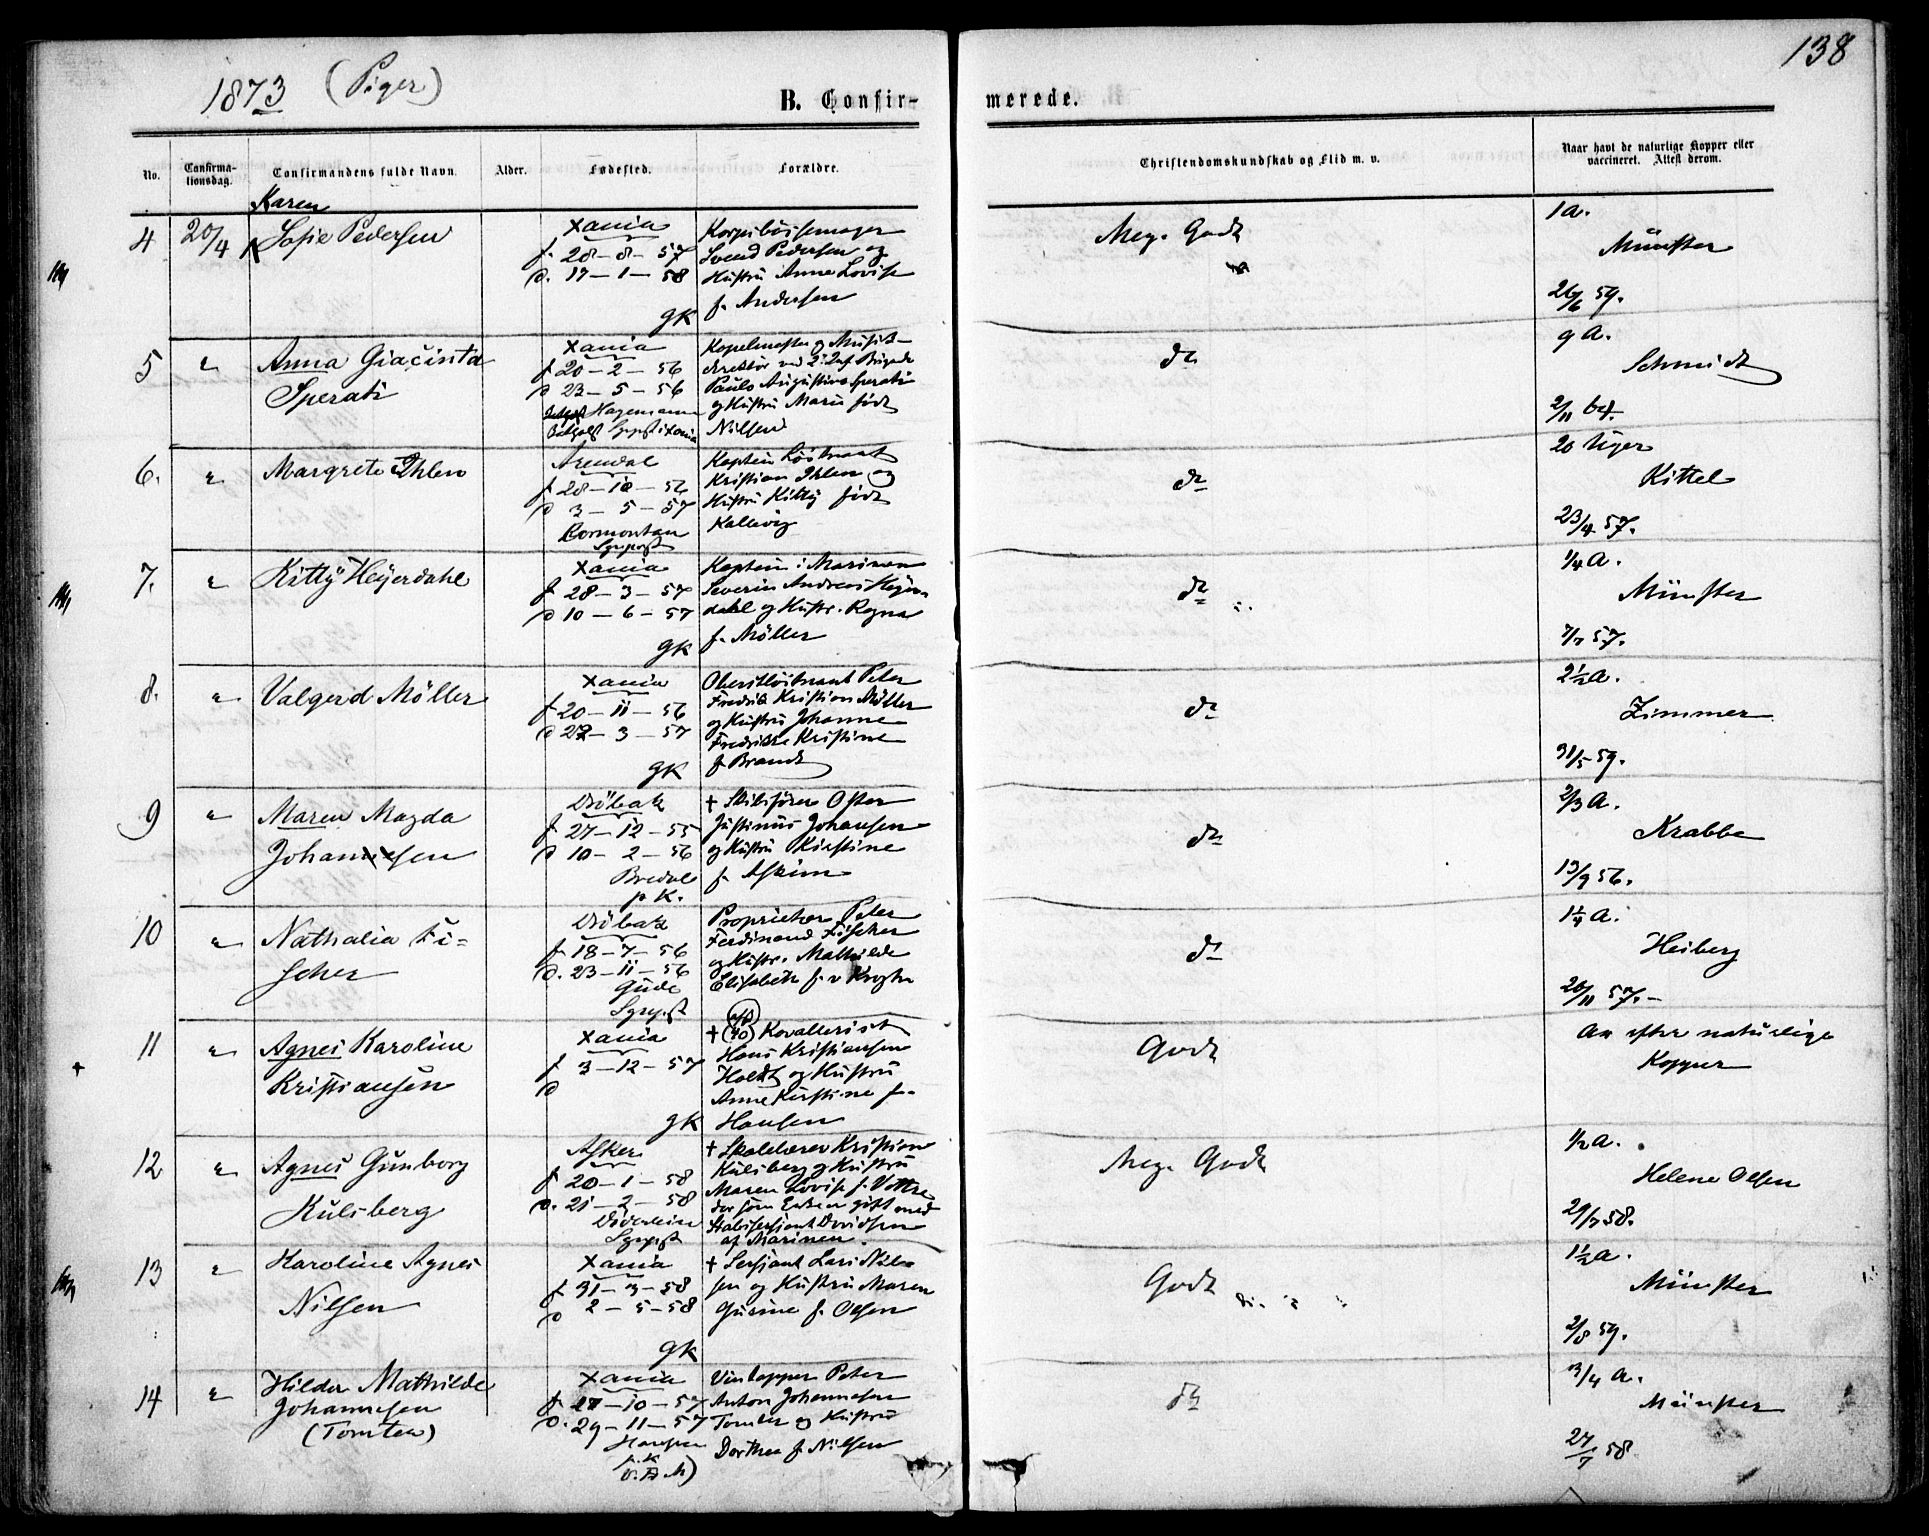 138
1873 (Piger)
B. Confir-
merede.
No.
Confirma-
tionsdag.
Confirmandens fulde Navn.
Alder.
Fødested.
Forældre.
Christendomskundskab og Flid m. v.
Naar havt de naturlige Kopper eller
vaccineret. Attest derom.
Karen
4 20/4 Sofie Pedersen
Xania
f. 28-8-57
d. 17-1-58
gK
Korpsbøssemager
Svend Pedersen og
Hustru Anne Lovise
f. Andersen
Meg. Godt
1 a.
Münster
26/6 59.
5 " Anna Giacinta
Sperati
Xania
f 20-2-56
d 23-5-56
Kapelmester og Musik-
direktør ved 2. Inf. Brigade
Paulo Augustino Sperati
og Hustru Marie født
Nilsen
do
9 a.
Schmidt
2/11
6. " Margrete Ihlen
Arendal
f 28-10-56
d 3-5-57
Kaptein Løitnant
Kristian Ihlen og
Hustru Kitty født
Kallevig
do
20 Uger
Kittel
23/4 57.
7. " Kitty Heyerdahl
Xania
f 28-3-57
d 10-6-57
gK
Kaptein i Marinen
Severin Andreas Heyer-
dahl og Hustr. Ragna
f. Möller
do
1/4 a.
Münster
7/7 57.
8. " Valgerd Möller
Xania
f 20-11-56
d 22-3-57
gK
Oberstløitnant Peter
Fredrik Kristian Möller
og Hustru Johanne
Fredrikke Kristine
f Brandt
do
2½ a.
Zimmer
31/5 59.
9 " Maren Magda
Johannesen
Drøbak
f 27-12-55
d 10-2-56
Bredal
p K.
† Skibsfører Ofter
Justinus Johansen
og Hustru Kirstine
f. Askim
do
2/3 a.
Krabbe
13/9 56.
10 " Nathalia Fi-
scher
Drøbak
f 18-7-56
d. 23-11-56
Gude
Sgnpst
Proprietær Peter
Ferdinand Fischer
og Hustr. Mathilde
Elisabeth f. v Krogh
do
1¼ a.
Heiberg
20/11 57.-
11 " Agnes Karoline
Kristiansen
Xania
f 3-12-57
d
gK
† Kavallerist
Hans Kristiansen
Holdt og Hustru
Anne Kirstine f.
Hansen
Godt
Ar efter naturlige
Kopper
12 " Agnes Gunborg
Kulsberg
Asker
f 20-1-58
d. 21-2-58
Sgnpst
† Skolelærer Kristian
Kulsberg og Hustru
Maren Lovise f. Vettre
der som Enke er gift med
Stabssersjant Davidsen
af Marinen.
Meg. Godt
½ a.
Helene Olsen
29/7 58.
13 " Karoline Agnes
Nilsen
Xania
f 31-3-58
d 2-5-58
gK
† Sersjant Lars Nil-
sen og Hustru Maren
Gurine f. Olsen
Godt
1½ a.
Münster
2/8 59.
14 " Hilda Mathilde
Johannesen
(Tomten)
Xania
f. 17-10-57
d. 29-11-57
Peter
Anton Johannesen
Tomter og Hustru
Dorthea f. Nilsen
do
3/4 a.
Münster
27/7 58